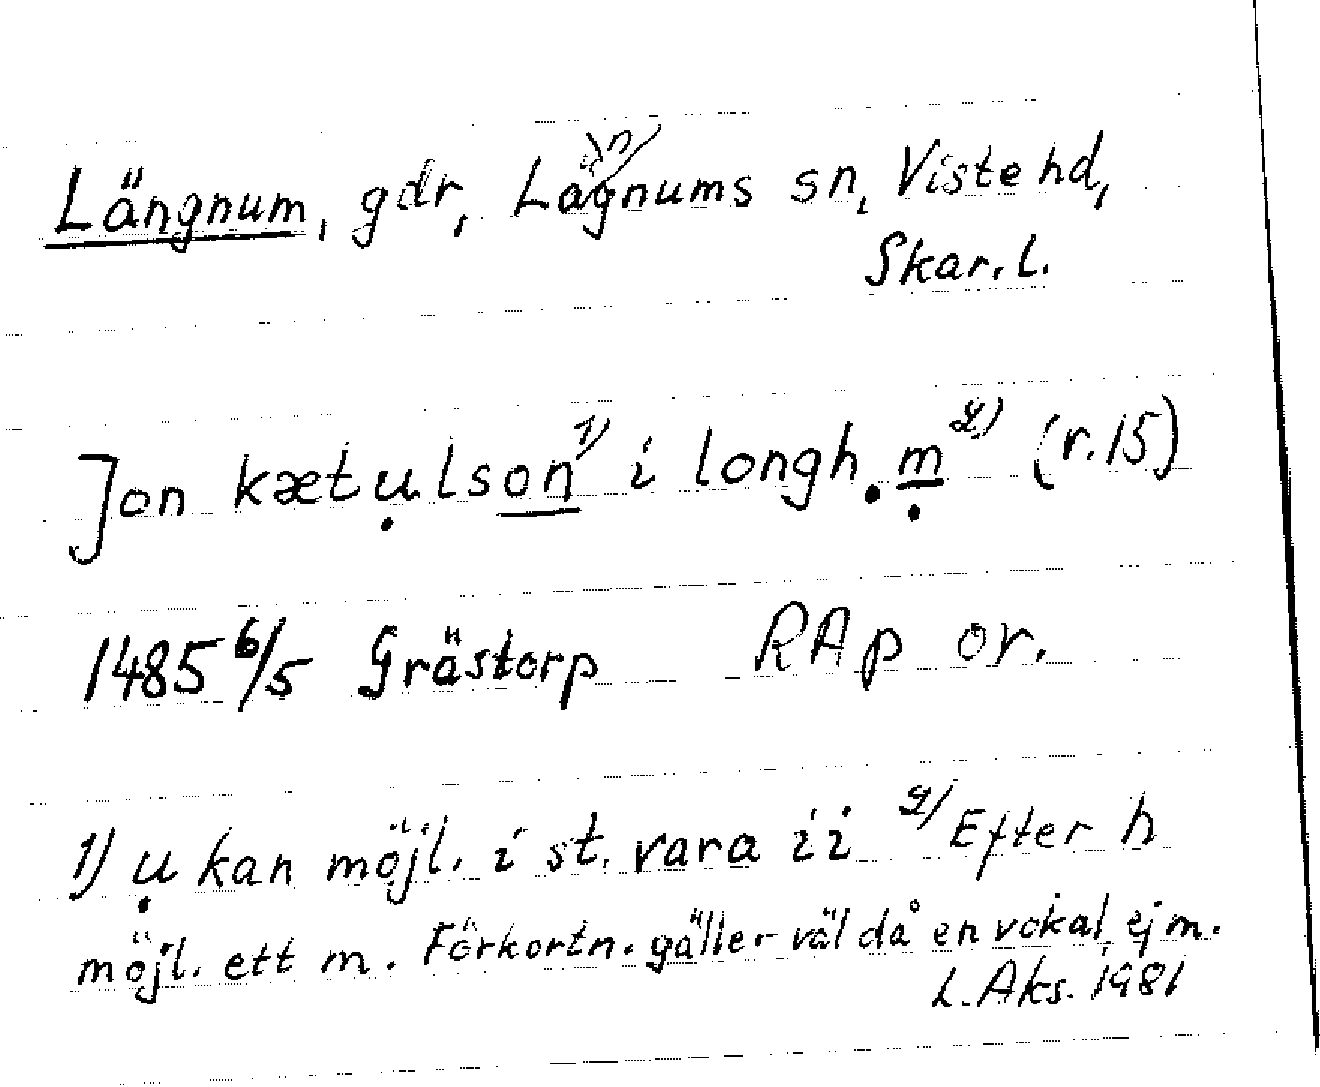 Längnum, gdr, Längnums sn, Viste hd,
Skar. L.
Jon kætụlson 1) i longh.ṃ 2) (r. 15)
1485 6/5 Grästorp RAp or.
1) ụ kan möjl. i st. vara ii 2) Efter h
möjl. ett m. Förkortn. gäller väl då en vokal, ej m.
L. Aks. 1981